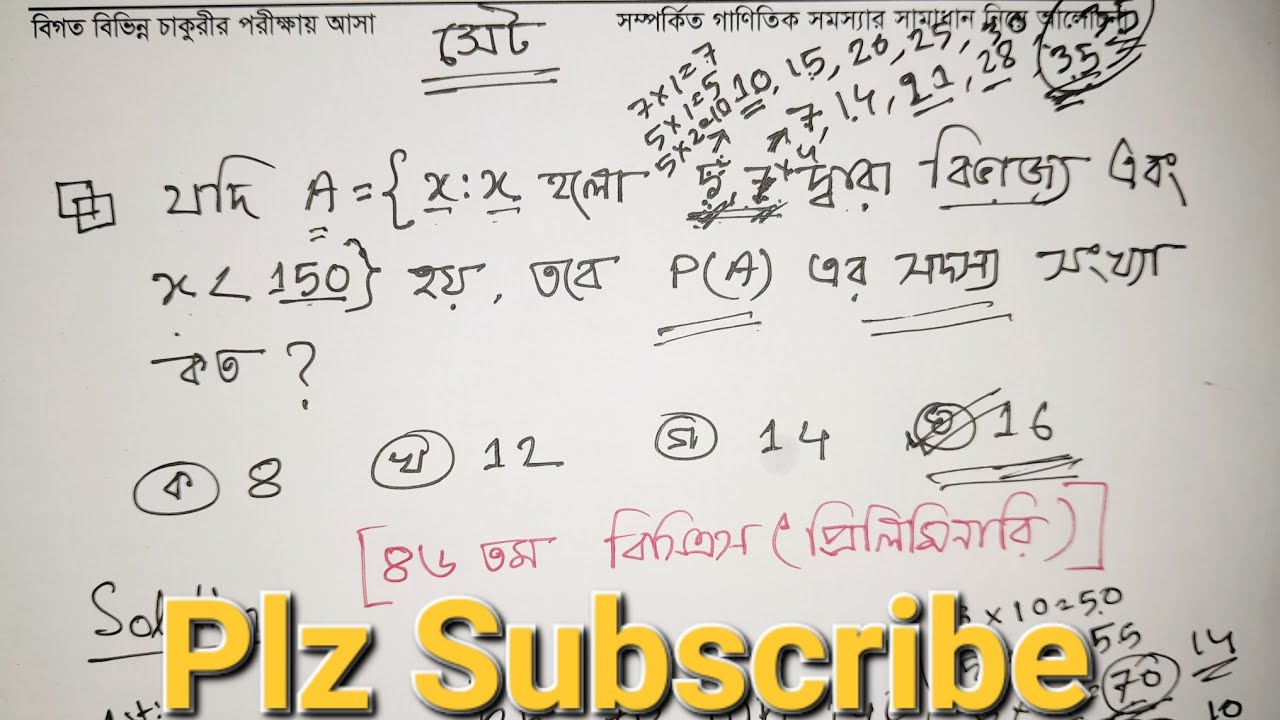 বিগত বিভিন্ন চাকুরীর পরীক্ষায় আসা
সেট
সম্পর্কিত গাণিতিক সমস্যার সামাধান নিয়ে আলোচনা
7×1=7
5×1=5
5×2=10
10, 15, 20, 25, 30
35
7, 14, 21, 28
যদি A={x:x হলো 5, 7 দ্বারা বিভাজ্য এবং
x<150} হয়, তবে P(A) এর সদস্য সংখ্যা
কত ?
ক 8 খ 12 গ 14 ঘ 16
[৪৬ তম বিচিএস (প্রিলিমিনারি)]
×10=50
55
14
=70
10
Plz Subscribe